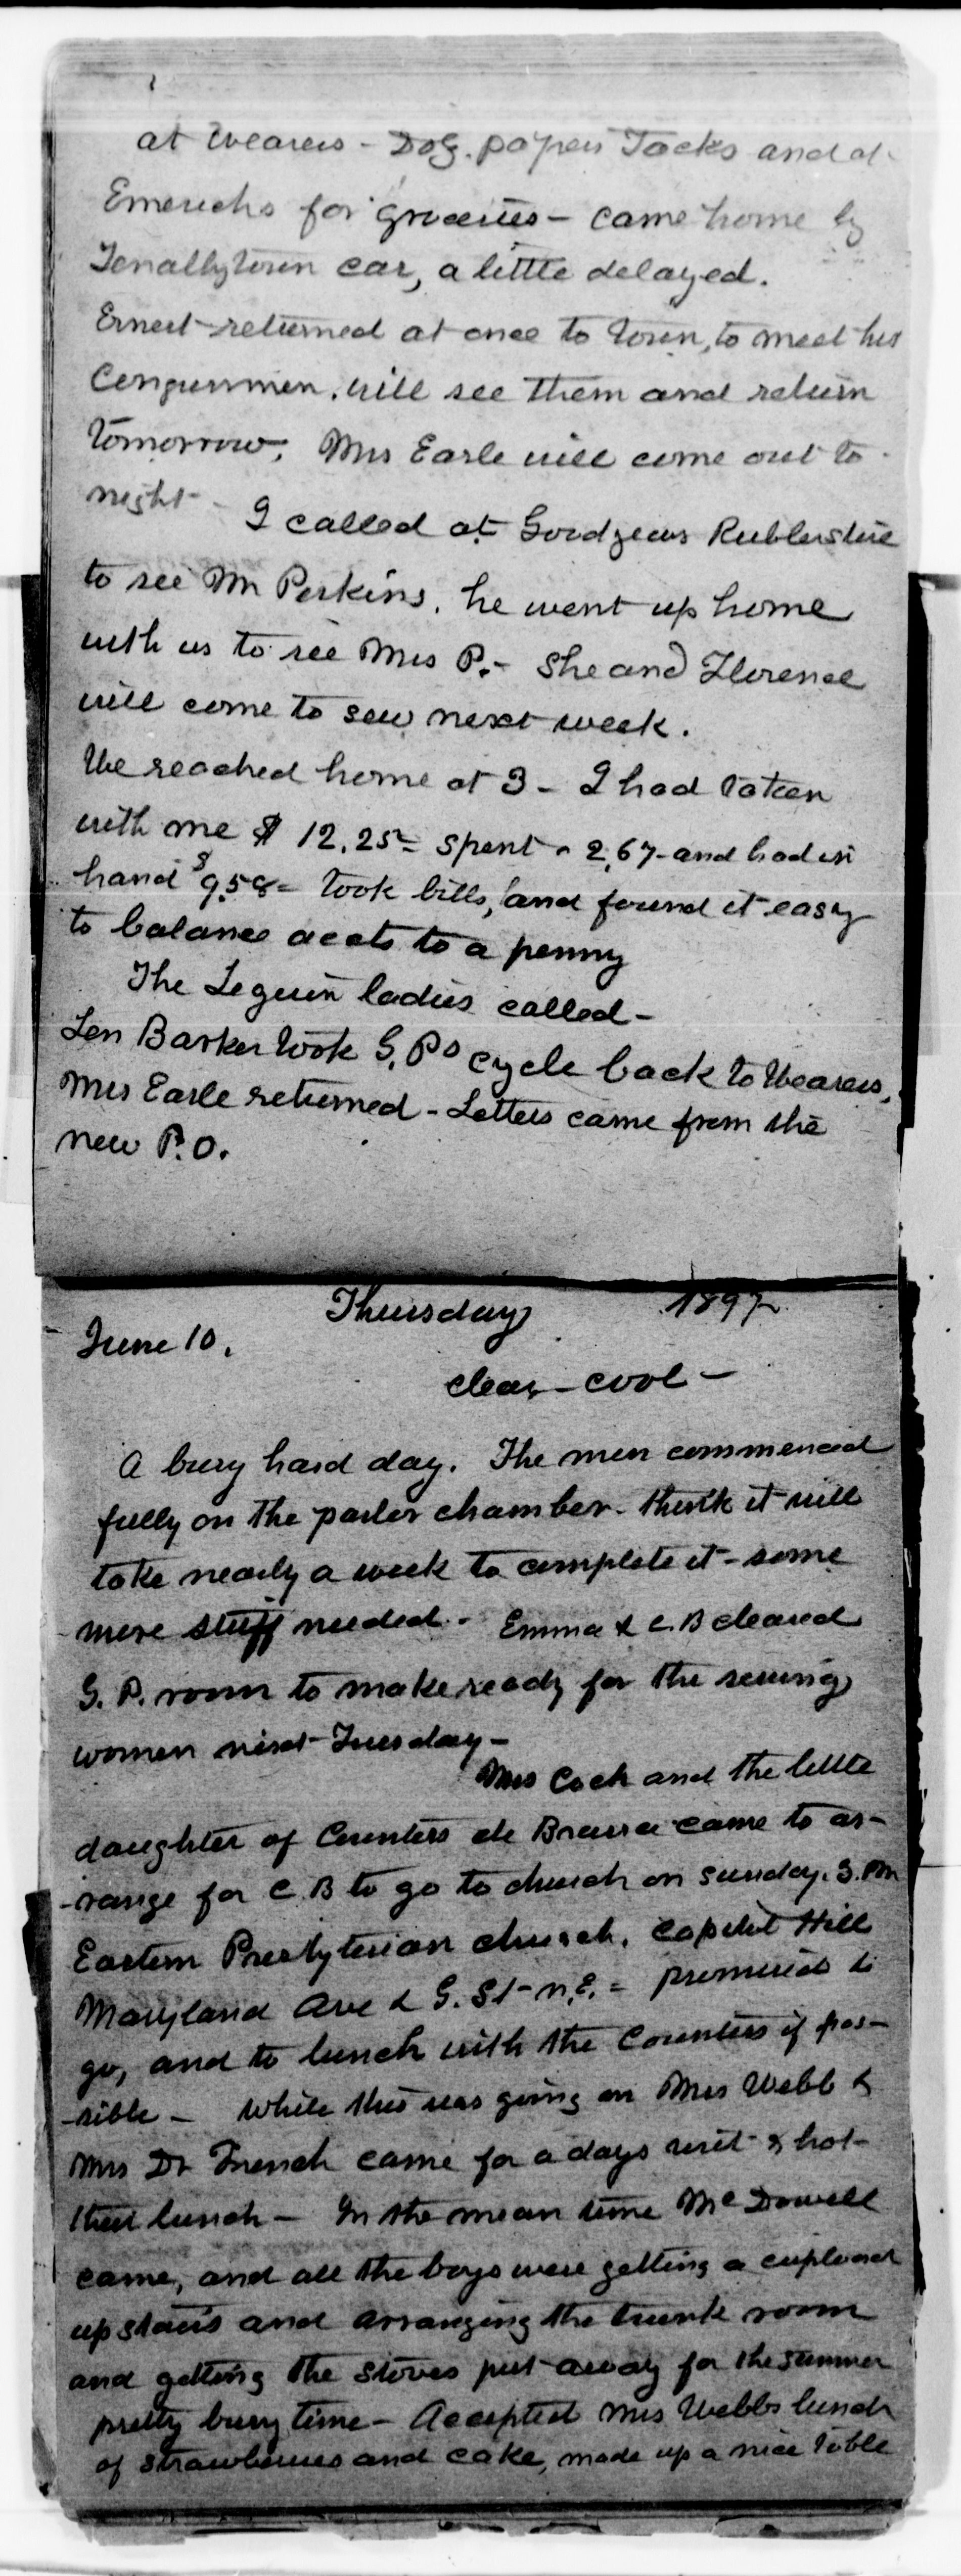 at Wearers - Dog. papers Tacks and at
Emerichs for groceries - came home by
Tenallytown car, a little delayed.
Ernest returned at once to town, to meet his
Congressmen. will see them and return
tomorrow. Mrs Earle will come out to
night - I called at Goodyears Rubberstore
to see Mr Perkins. he went up home
with us to see Mrs P. - She and Florence
will come to sew next week.
We reached home at 3 - I had taken
with me $ 12.25 = spent - 2,67 - and had in
hand $9.58 = took bills, and found it easy
to balance accts to a penny
The Leguin ladies called -
Len Barker took G. Ps cycle back to Wearers,
Mrs Earle returned - Letters came from the
new P.O.
Thursday 1897
June 10.
clear - cool -
A busy hard day. The men commenced
fully on the parlor chamber - think it will
take nearly a week to complete it - some
more stuff needed - Emma & C.B cleared
G. P. room to make ready for the sewing
women next Tuesday -
Mrs Cock and the little
daughter of Countess de Brazza came to ar-
-range for C.B to go to church on Sunday. 3. PM
Eastern Presbyterian church. Capitol Hill
Maryland Ave & G. St - n,E, = promised to
go, and to lunch with the Countess if pos-
-sible - While this was going on Mrs Webb &
Mrs Dr French came for a days visit &
their lunch - In the mean time McDowell
came, and all the boys were getting a cupboard
up stairs and arranging the trunk room
and getting the stoves put away for the summer
pretty busy time - Accepted Mrs Webbs lunch
of strawberries and cake, made up a nice table